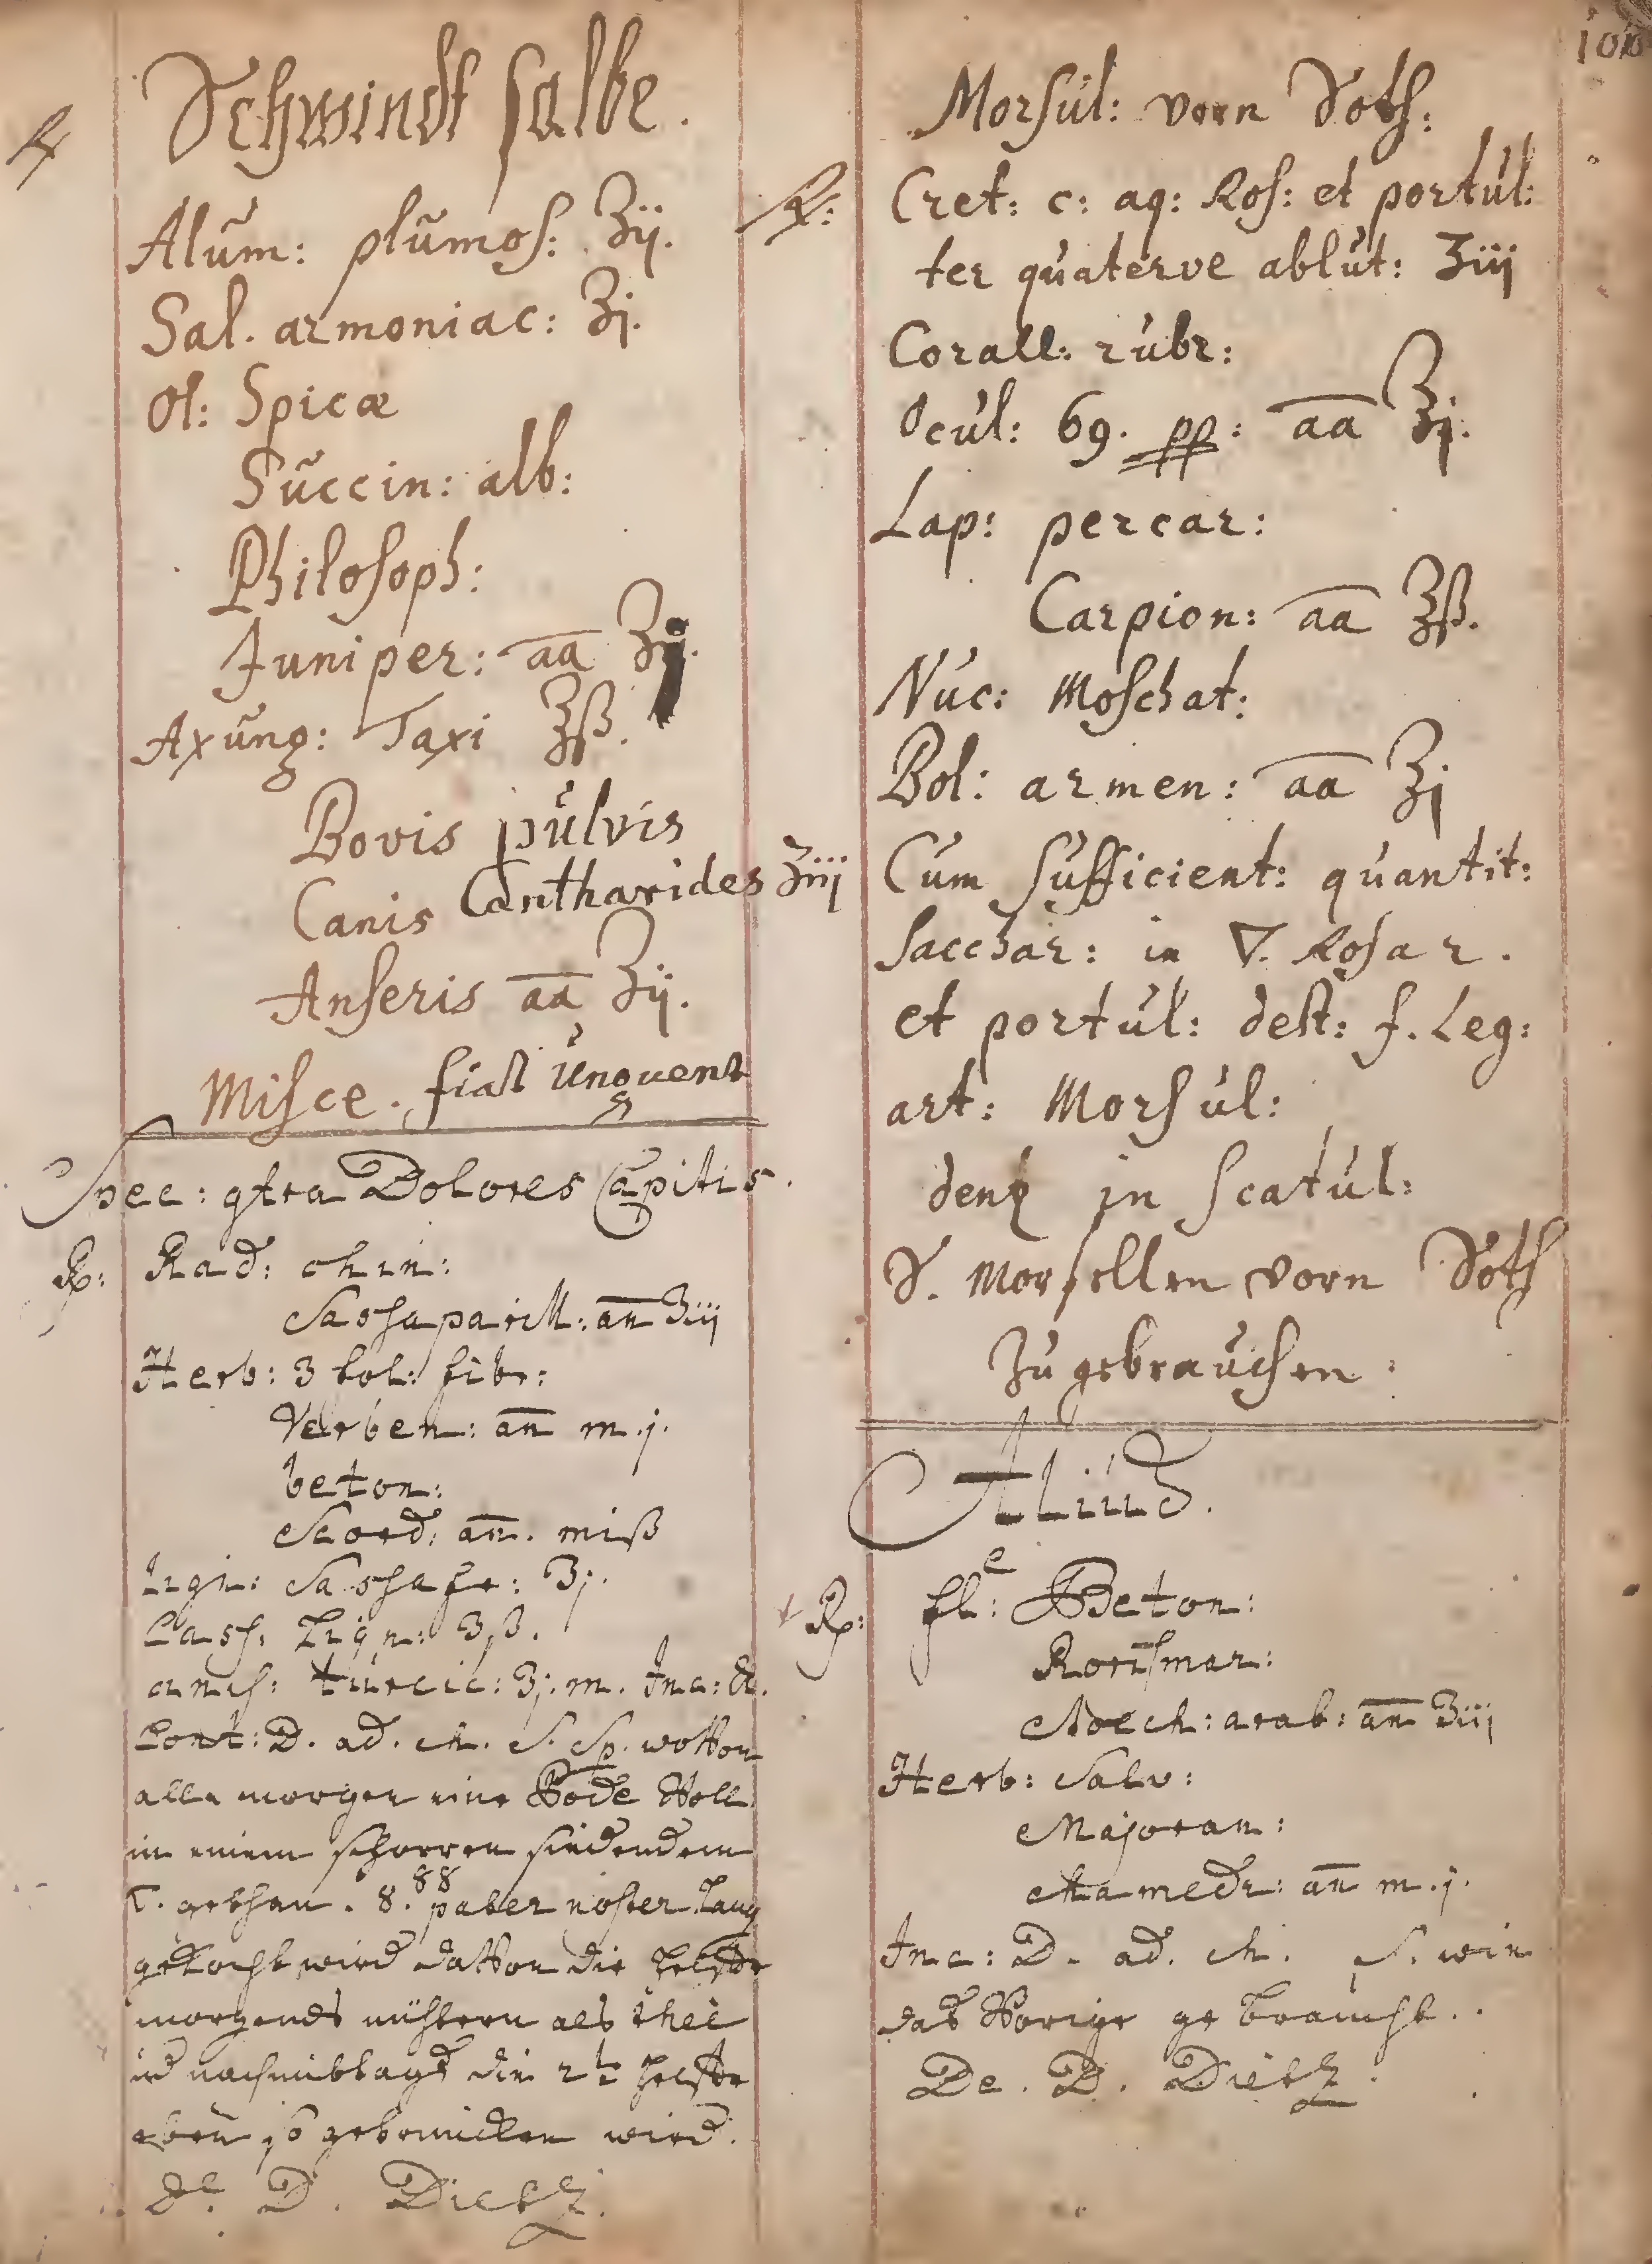 100
Schwindt salbe.
℞
Alum: plumos: ʒij.
Sal. armoniac: ʒj.
Ol: Spicæ
Succin: alb:
Philosoph:
Juniper: aa ʒij.
Axung: Taxi ʒß.
Bovis pulvis
Canis Cantharides ʒiij
Anseris aa ʒij.
Misce. fiat Unguent
Spec: gtra Dolores Capitis.
℞: Rad: chin:
Sassaparill: an ʒiij
Herb: 3 fol: fibr:
Verben: an m.j.
beton:
Scord: an. miß
Lign: Sassafr: ʒj.
Cass: Lign: ʒß.
anis: turcic: ʒj. m. Inc: &.
Cont: D. ad. ch. S. Sp. wovon
alle morgen eine voll
in einem siedendem
gethan. 8. 88 pater noster lang
gekocht wird davon die helfte
morgends nüchtern als thee
ud nachmittags die 2te helfte
eben so getruncken wird.
De. D. Dietz.
Morsul: vorn Soth:
℞: Cret: c: aq: Ros: et portul:
ter quaterve ablut: ʒiij
Corall: rubr:
Ocul: 69. pp: aa ʒj.
Lap: percar:
Carpion: aa ʒß.
Nuc: Moschat:
Bol: armen: aa ʒj
Cum sufficient: quantit:
Sacchar: in ▽. Rosar.
et portul: dest: f. Leg:
art: Morsul:
dent in Scatul:
S. Morsellen vorn Soth
Zu gebrauchen:
Aliud.
℞: fl: Beton:
Rorismar:
Stoech: arab: an ʒiij
Herb: Salv:
Majoran:
Chamedr: an m.j.
Inc: D. ad. ch. S. wie
das Vorige gebraucht.
De. D. Dietz.